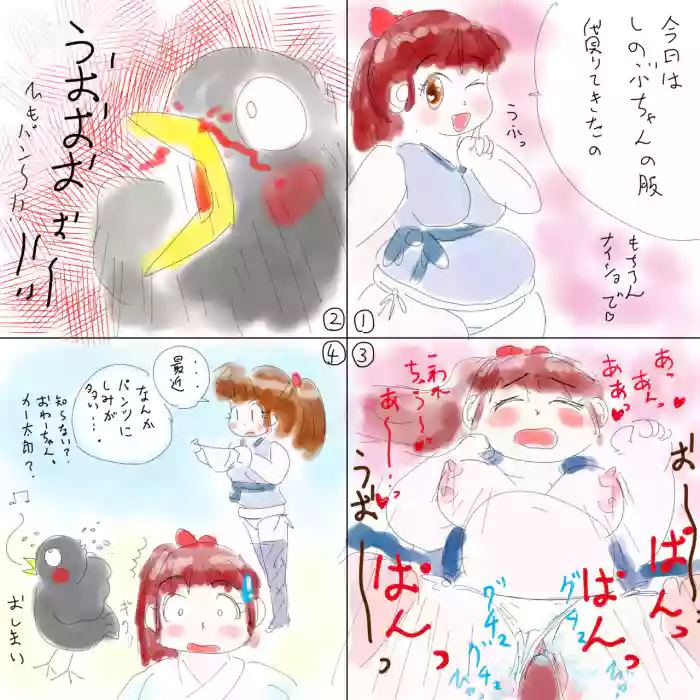 ①
今日は
しのぶちゃんの服
借りてきたの
うふっ
もちろん
ナイショで♡
②
うおおおおー
ひもパン〜!!
③
あっ
あん♡
ああっ♡
こわれ
ちゃうー
あー
おーっ
うおーっ
ぱんっ
ぱんっ
ぱんっ
グチュ
グチュ
グチュ
④
最近
なんか
パンツに
しみが
多い…
知らない?
おわーちゃん、
カー太郎?
♪
ギクッ
おしまい